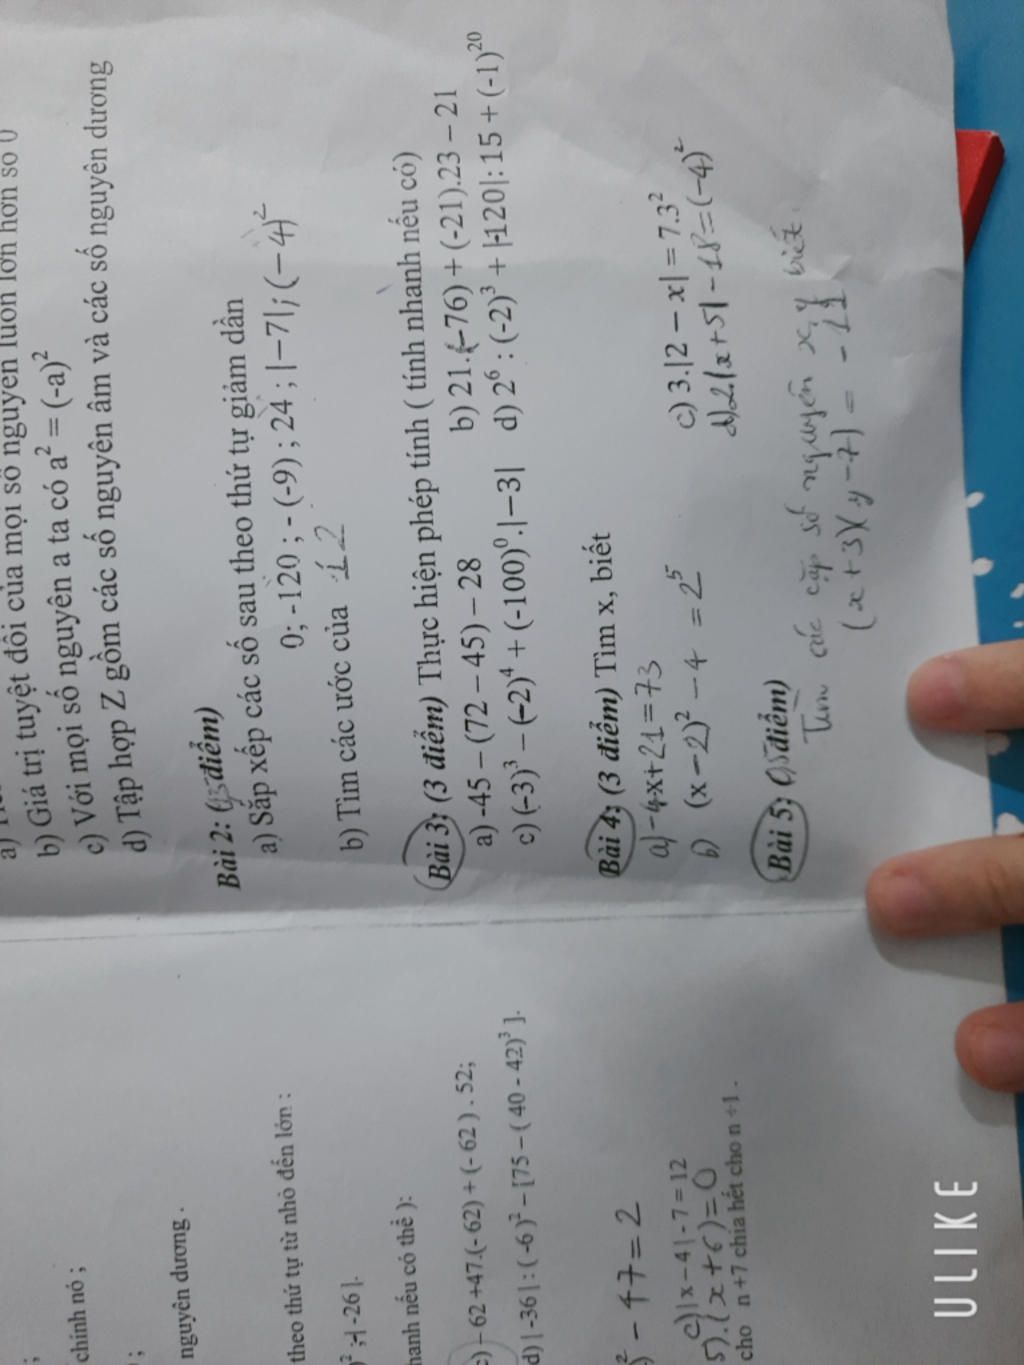 a)
b) Giá trị tuyệt đối của mọi số nguyên luôn lớn hơn số 0
c) Với mọi số nguyên a ta có a² = (-a)²
d) Tập hợp Z gồm các số nguyên âm và các số nguyên dương
Bài 2: (1,5 điểm)
a) Sắp xếp các số sau theo thứ tự giảm dần
0; -120 ; - (-9) ; 24 ; |-7|; (-4)²
b) Tìm các ước của 12
Bài 3: (3 điểm) Thực hiện phép tính ( tính nhanh nếu có)
a) -45 – (72 – 45) – 28 b) 21.(-76) + (-21).23 – 21
c) (-3)³ – (-2)⁴ + (-100)⁰.|-3| d) 2⁶ : (-2)³ + |-120|: 15 + (-1)²⁰
Bài 4: (3 điểm) Tìm x, biết
a) -4x+21=73 c) 3.|2 – x| = 7.3²
b) (x – 2)² – 4 = 2⁵ d) 2.|x+5| – 18 = (-4)²
Bài 5: (0,5 điểm)
Tìm các cặp số nguyên x, y biết.
(x+3)(y-7) = -11
;
chính nó ;
;
nguyên dương .
theo thứ tự từ nhỏ đến lớn :
² ;-| -26 |.
nhanh nếu có thể ):
c) – 62 +47.(-62) + (- 62 ) . 52;
d) | -36 | : ( -6 )² – [75 – ( 40 - 42)³ ].
² – 17=2
c) |x – 4 | - 7 = 12
5).(x+6)=0
cho n +7 chia hết cho n +1 .
ULIKE